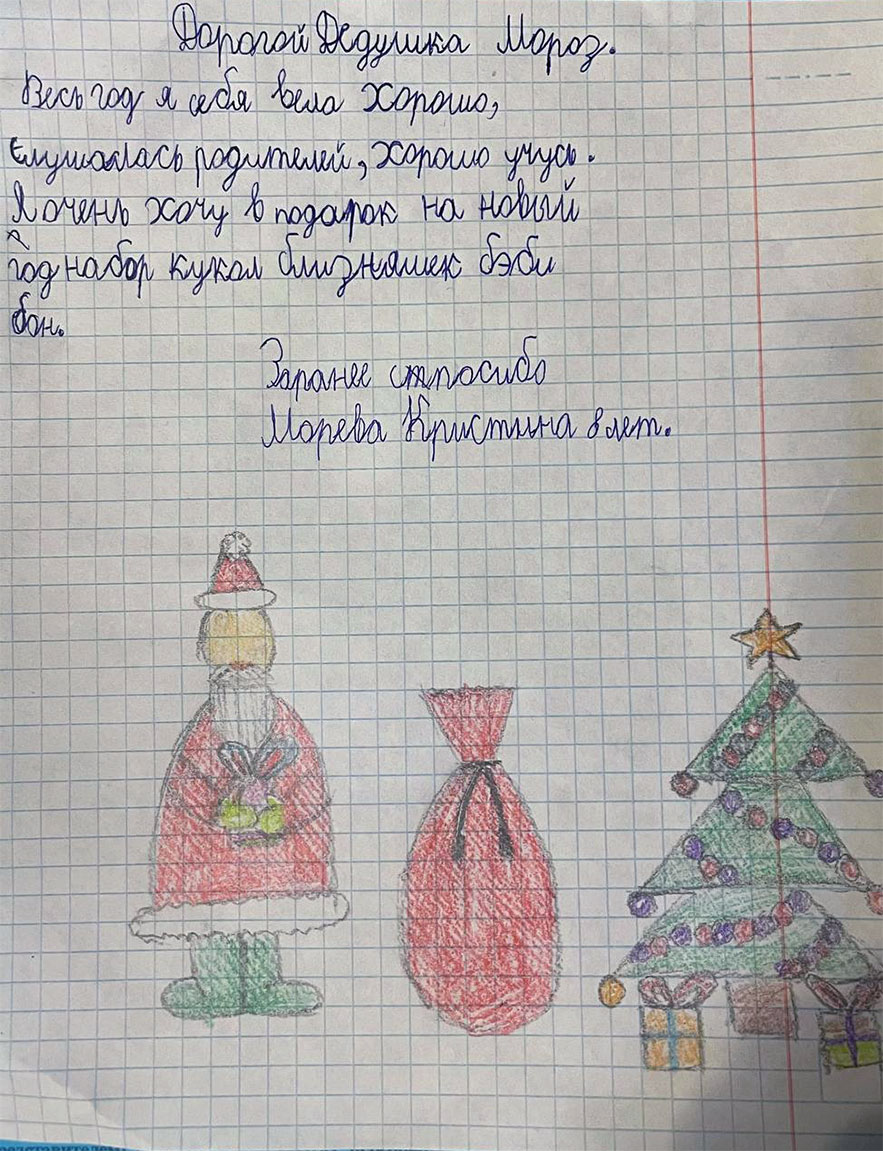 Дорогой Дедушка Мороз.
Весь год я себя вела хорошо,
слушалась родителей, хорошо учусь.
Я очень хочу в подарок на новый
год набор кукол близняшек бэби
бон.
Заранее спасибо
Морева Кристина 8 лет.